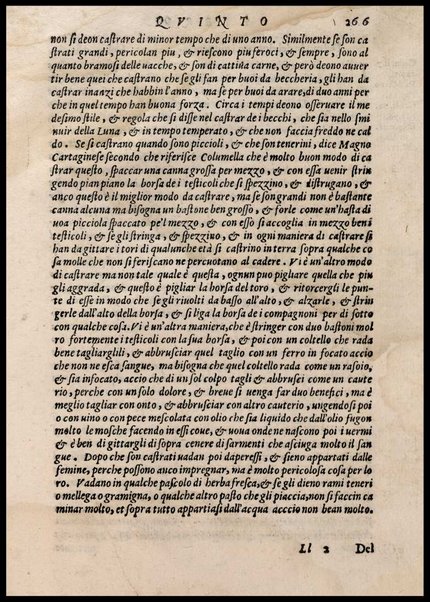 QVINTO 266
non si deon castrare di minor tempo che di uno anno. Similmente se son ca
strati grandi, pericolan piu, & riescono piu feroci, & sempre, sono al
quanto bramosi delle uacche, & son di cattiua carne, & però deono auuer
tir bene quei che castrano che se gli fan per buoi da beccheria, gli han da
castrar inanzi che habbin l'anno, ma se per buoi da arare, di duo anni per
che in quel tempo han buona forza. Circa i tempi deono osseruare il me
desimo stile, & regola che si disse nel castrar de i becchi, che sia nello smi
nuir della Luna, & in tempo temperato, & che non faccia freddo ne cal
do. Se si castrano quando son piccioli, & che son tenerini, dice Magno
Cartaginese secondo che riferisce Columella che è molto buon modo di ca
strar questo, spaccar una canna grossa per mezzo, & con essa uenir strin
gendo pian piano la borsa de i testicoli che si spezzino, & distrugano, &
anco questo è il miglior modo da castrare, ma se son grandi non è bastante
canna alcuna ma bisogna un bastone ben grosso, & forte come un'hasta di
uoa picciola spaccato pe'l mezzo, & con esso si accoglia in mezzo ben i
testicoli, & se gli stringa, & spezzino, & in ogni maniera di castrare si
han da gittare i tori di qualunche età si castrino in terra sopra qualche co
sa molle che non si feriscano ne percuotano al cadere. Vi è un'altro modo
di castrare ma non tale quale è questa, ognun puo pigliare quella che piu
gli aggrada, & questo è pigliar la borsa del toro, & ritorcergli le pun-
te di esse in modo che se gli riuolti da basso all'alto, & alzarle, & strin
gerle dall'alto della borsa, & si liga la borsa de i compagnoni per di sotto
con qualche cosa. Vi è un'altra maniera, che è stringer con duo bastoni mol
ro fortemente i testicoli con la sua borsa, & poi con un coltello che rada
bene tagliarglili, & abbrusciar quel taglio con un ferro in focato accio
che non ne esca sangue, ma bisogna che quel coltello rada come un rasoio,
& sia infocato, accio che di un sol colpo tagli & abbrusci come un caute
rio, perche con un solo dolore, & breue si uenga far duo benefici, ma è
meglio tagliar con onto, & abbrusciar con altro cauterio, ungendosi poi
o con uino o con pece mescolata con olio che sia liquido che dall'olio fugon
molto le mosche facendo in essi coue, & uoua onde ne nascono poi i uermi
& è ben di gittargli di sopra cenere di sarmenti che asciuga molto il san
gue. Dopo che son castrati uadan poi daperessi, & sieno appartati dalle
femine, perche possono anco impregnar, ma è molto pericolosa cosa per lo
ro. Vadano in qualche pascolo di herba fresca, & se gli dieno rami teneri
o mellega o gramigna, o qualche altro pasto che gli piaccia, non si faccin ca
minar molto, et sopra tutto appartiasi dall'acqua acccio non bean molto.
Ll 2 Del